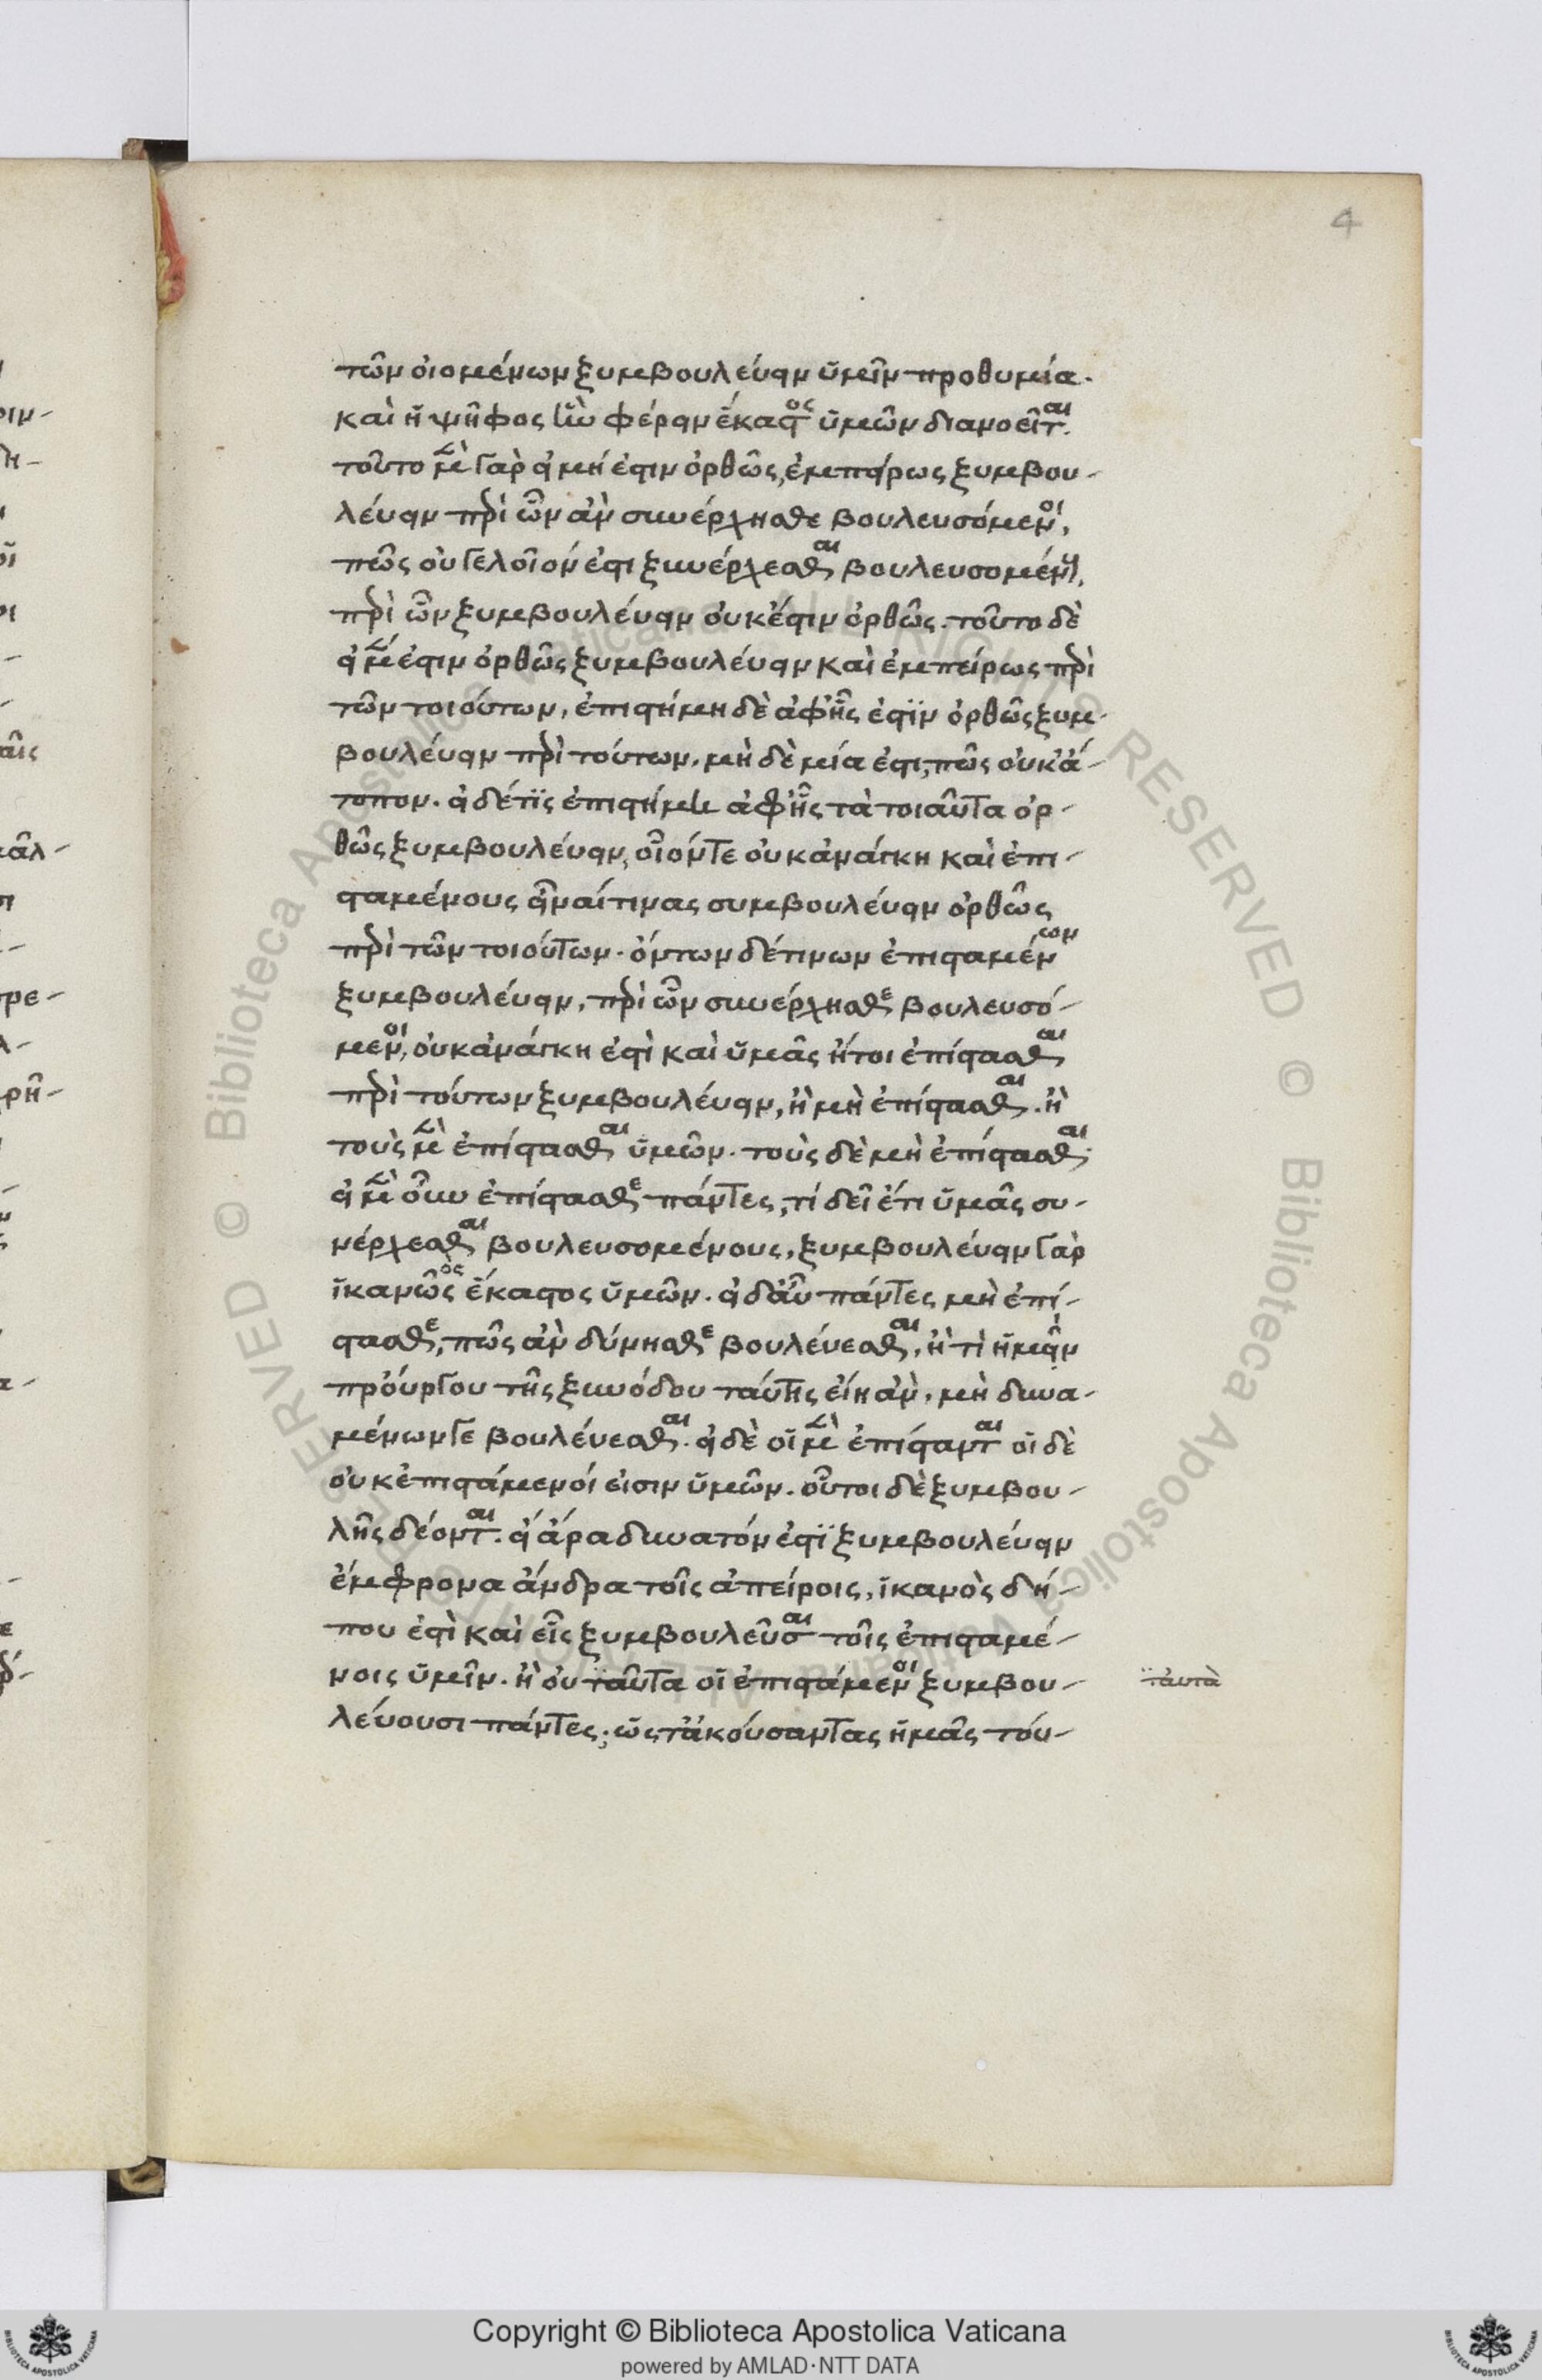 4
τῶν οἰομένων ξυμβουλεύειν ὑμῖν προθυμία.
καὶ ἡ ψῆφος ἣν φέρειν ἕκαστος ὑμῶν διανοεῖται.
τοῦτο μὲν γὰρ εἰ μή ἐστιν ὀρθῶς, ἐμπείρως ξυμβου-
λεύειν περὶ ὧν ἂν συνέρχησθε βουλευσόμενοι,
πῶς οὐ γελοῖον ἐστι ξυνέρχεσθαι βουλευσομένους,
περὶ ὧν ξυμβουλεύειν οὐκ ἔστιν ὀρθῶς. τοῦτο δὲ
εἰ μέν ἐστιν ὀρθῶς ξυμβουλεύειν καὶ ἐμπείρως περὶ
τῶν τοιούτων, ἐπιστήμη δὲ ἀφ' ἧς ἐστϊν ὀρθῶς ξυμ-
βουλεύειν περὶ τούτων, μὴ δὲ μία ἐστι, πῶς οὐκ ἄ-
τοπον. εἰ δέ τϊς ἐπιστήμη ἀφ' ἧς τὰ τοιαῦτα ὀρ-
θῶς ξυμβουλεύειν, οἷόν τε οὐκ ἀνάγκη καὶ ἐπι-
σταμένους εἶναί τινας συμβουλεύειν ὀρθῶς
περὶ τῶν τοιούτων. ὄντων δέ τινων ἐπισταμένων
ξυμβουλεύειν, περὶ ὧν συνέρχησθε βουλευσό-
μενοι, οὐκ ἀνάγκη ἐστὶ καὶ ὑμᾶς ἤτοι ἐπίστασθαι
περὶ τούτων ξυμβουλεύειν, ἢ μὴ ἐπίστασθαι. ἢ
τοὺς μὲν ἐπίστασθαι ὑμῶν. τοὺς δὲ μὴ ἐπίστασθαι·
εἰ μὲν οὖν ἐπίστασθε πάντες, τί δεῖ ἔτι ὑμᾶς συ-
νέρχεσθαι βουλευσομένους, ξυμβουλεύειν γὰρ
ἱκανῶς ὸς ἕκαστος ὑμῶν. εἰ δ' αὖ πάντες μὴ ἐπί-
στασθε, πῶς ἂν δύνησθε βουλεύεσθαι, ἢ τὶ ἡμῖν
προὔργου τῆς ξυνόδου ταύτης εἴη ἂν, μὴ δυνα-
μένων γε βουλεύεσθαι. εἰ δὲ οἱ μὲν ἐπίστανται οἱ δὲ
οὐκ ἐπιστάμενοί εἰσιν ὑμῶν. οὗτοι δὲ ξυμβου-
λῆς δέονται. εἰ ἄρα δυνατόν ἐστϊ ξυμβουλεύειν
ἔμφρονα ἄνδρα τοῖς ἀπείροις, ἱκανὸς δή-
που ἐστὶ καὶ εἷς ξυμβουλεῦσαι τοῖς ἐπισταμέ-
νοις ὑμῖν. ἢ οὐ ταῦτα οἱ ἐπιστάμενοι ξυμβου-
ταὐτὰ
λεύουσι πάντες; ὥς τ' ἀκούσαντας ἡμᾶς τού-
Copyright © Biblioteca Apostolica Vaticana
powered by AMLAD·NTT DATA